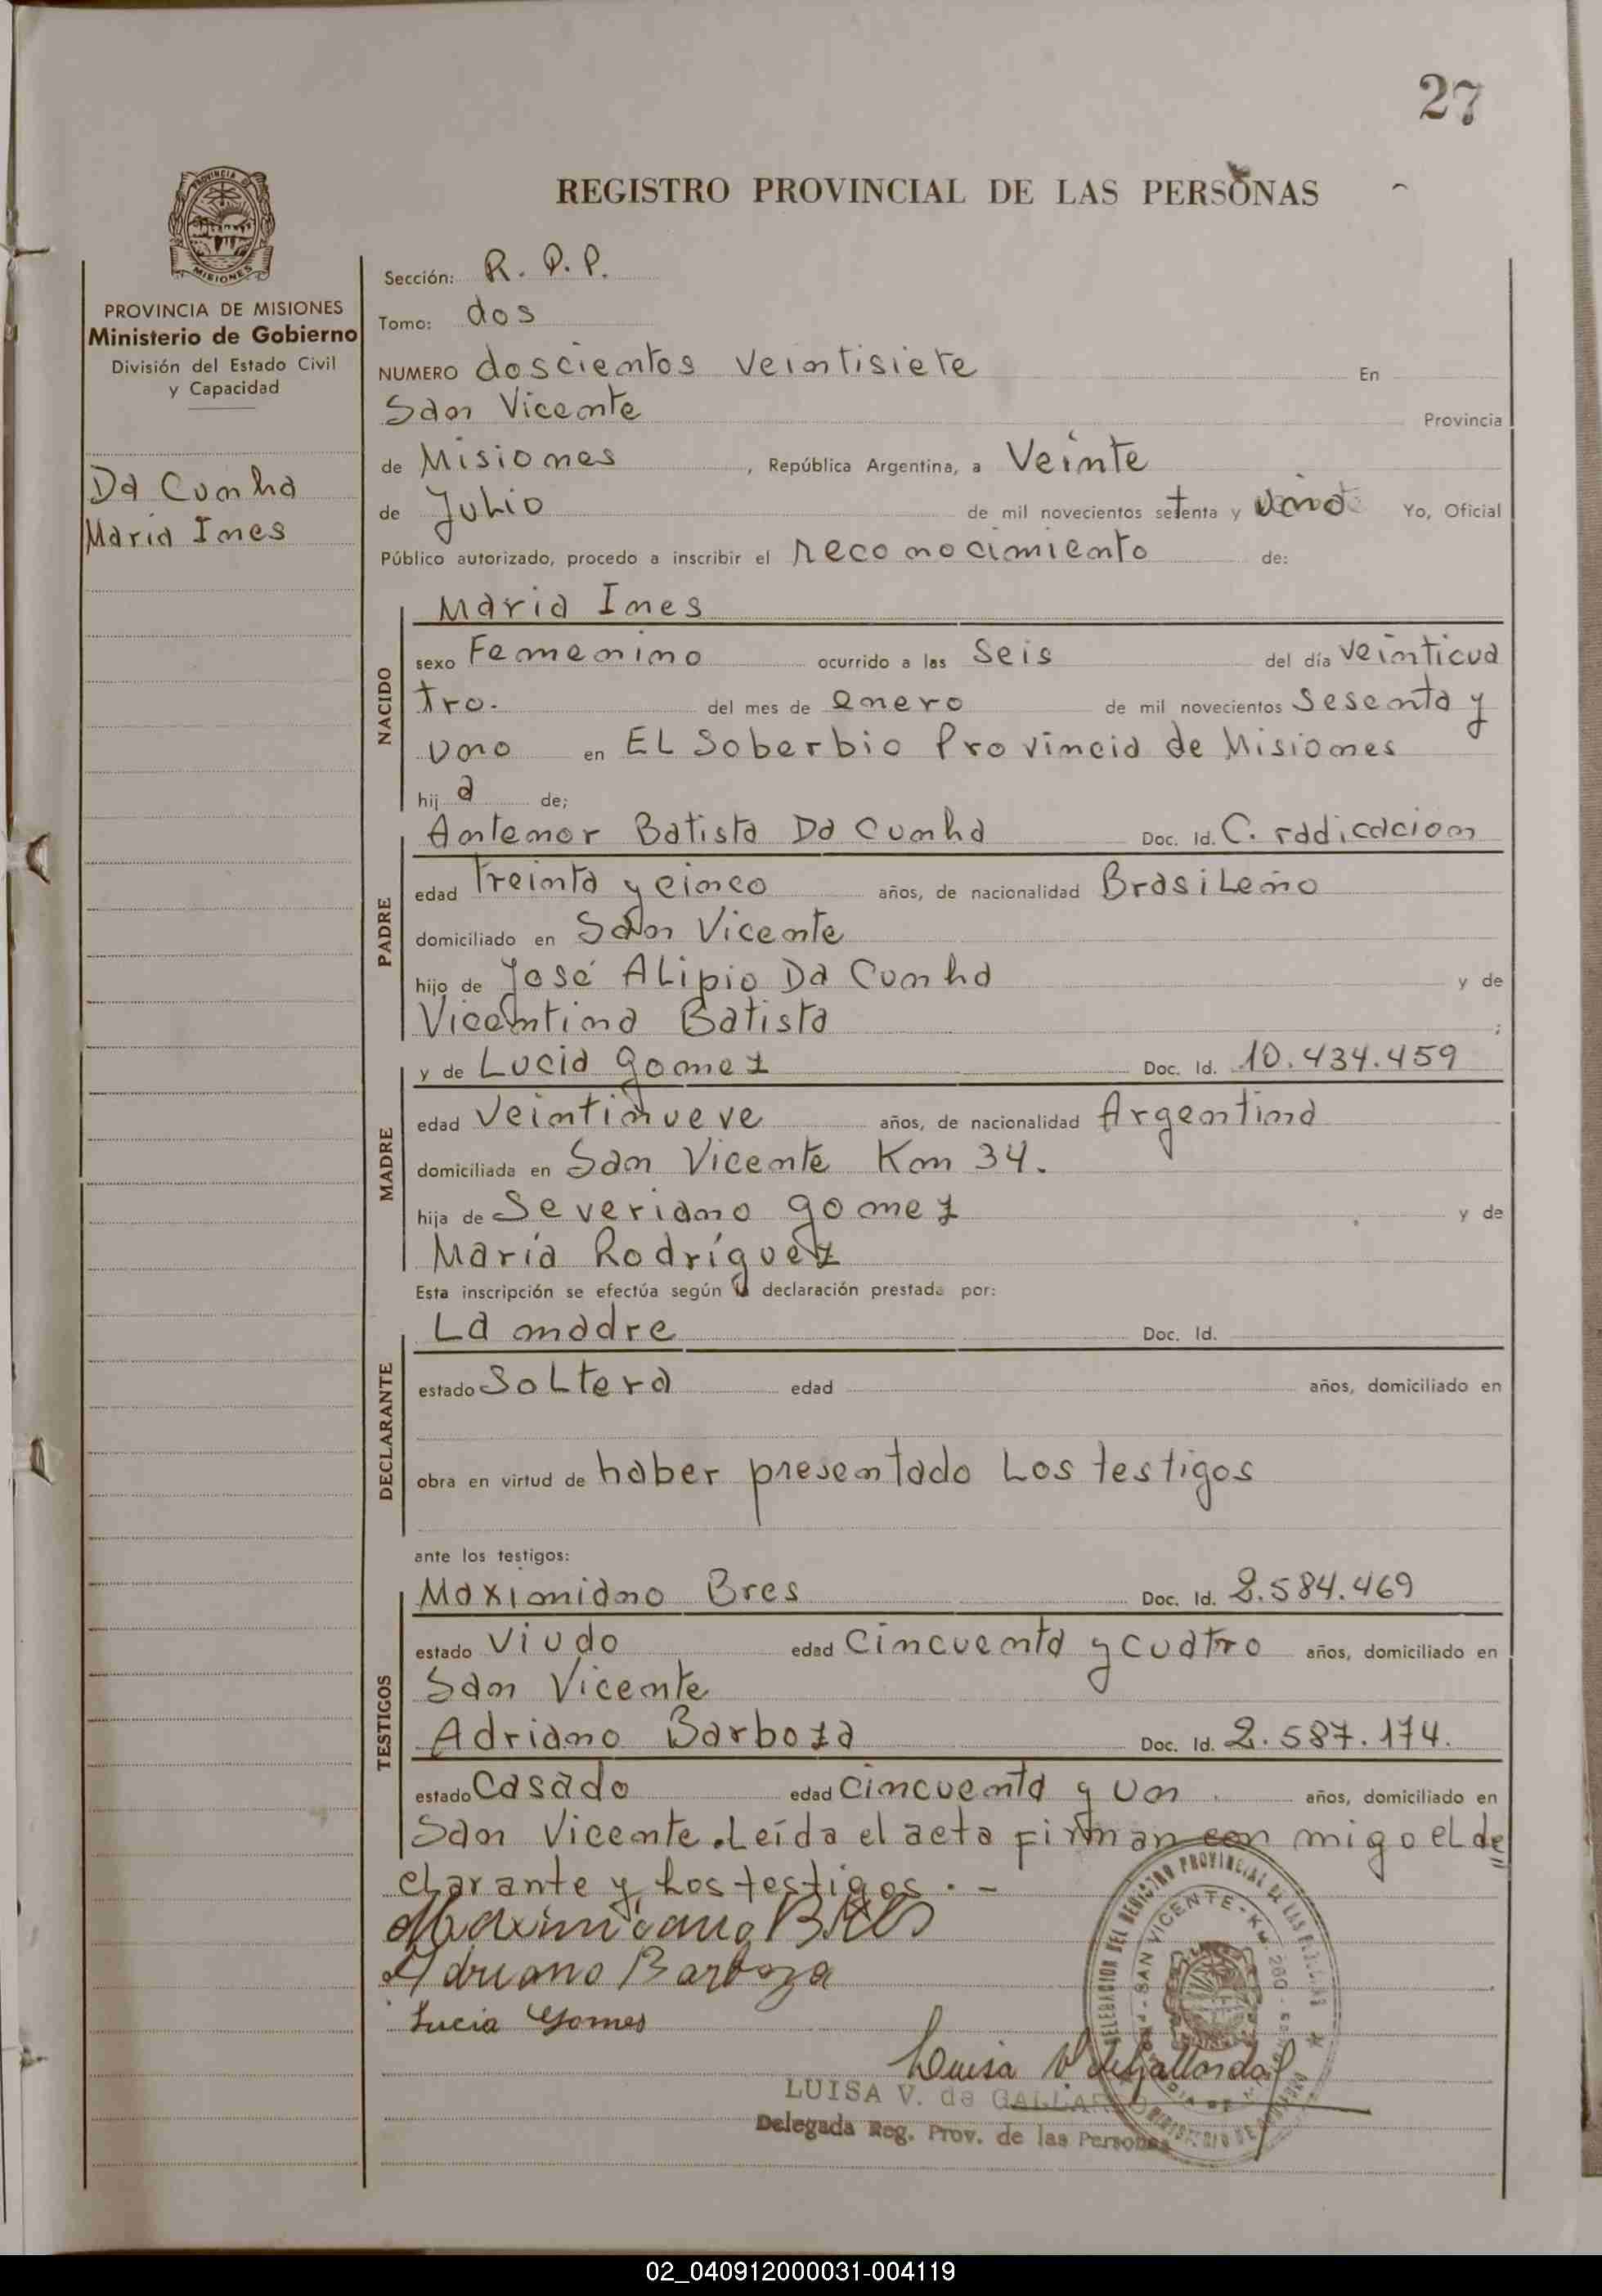 27
REGISTRO PROVINCIAL DE LAS PERSONAS
PROVINCIA DE MISIONES
Ministerio de Gobierno
División del Estado Civil
y Capacidad
Da Cunha
Maria Ines
Sección: R. P. P.
Tomo: dos
NUMERO doscientos veintisiete En
San Vicente Provincia
de Misiones, República Argentina, a Veinte
de Julio de mil novecientos setenta y uno Yo, Oficial
Público autorizado, procedo a inscribir el reconocimiento de:
NACIDO
Maria Ines
sexo Femenino ocurrido a las Seis del día veinticua
tro. del mes de enero de mil novecientos Sesenta y
uno en EL Soberbio Provincia de Misiones
hij a de;
PADRE
Antenor Batista Da Cunha Doc. Id. C. radicacion
edad treinta y cinco años, de nacionalidad Brasileño
domiciliado en San Vicente
hijo de José Alipio Da Cunha y de
Vicentina Batista ;
MADRE
y de Lucia Gomez Doc. Id. 10.434.459
edad Veintinueve años, de nacionalidad Argentina
domiciliada en San Vicente Km 34.
hija de Severiano Gomez y de
María Rodríguez
Esta inscripción se efectúa según la declaración prestada por:
DECLARANTE
La madre Doc. Id.
estado Soltera edad años, domiciliado en
obra en virtud de haber presentado Los testigos
ante los testigos:
TESTIGOS
Maximiano Bres Doc. Id. 2.584.469
estado Viudo edad Cincuenta y cuatro años, domiciliado en
San Vicente
Adriano Barboza Doc. Id. 2.587.174.
estado Casado edad Cincuenta y un años, domiciliado en
San Vicente. Leída el acta firman con migo el de
clarante y Los testigos. -
Maximiano Bres
Adriano Barboza
Lucia Gomes
Luisa V de Gallardo
LUISA V. de GALLARDO
Delegada Reg. Prov. de las Personas
DELEGACION DEL REGISTRO PROVINCIAL DE LAS PERSONAS
SAN VICENTE - KM. 260
MINISTERIO DE GOBIERNO
02_040912000031-004119